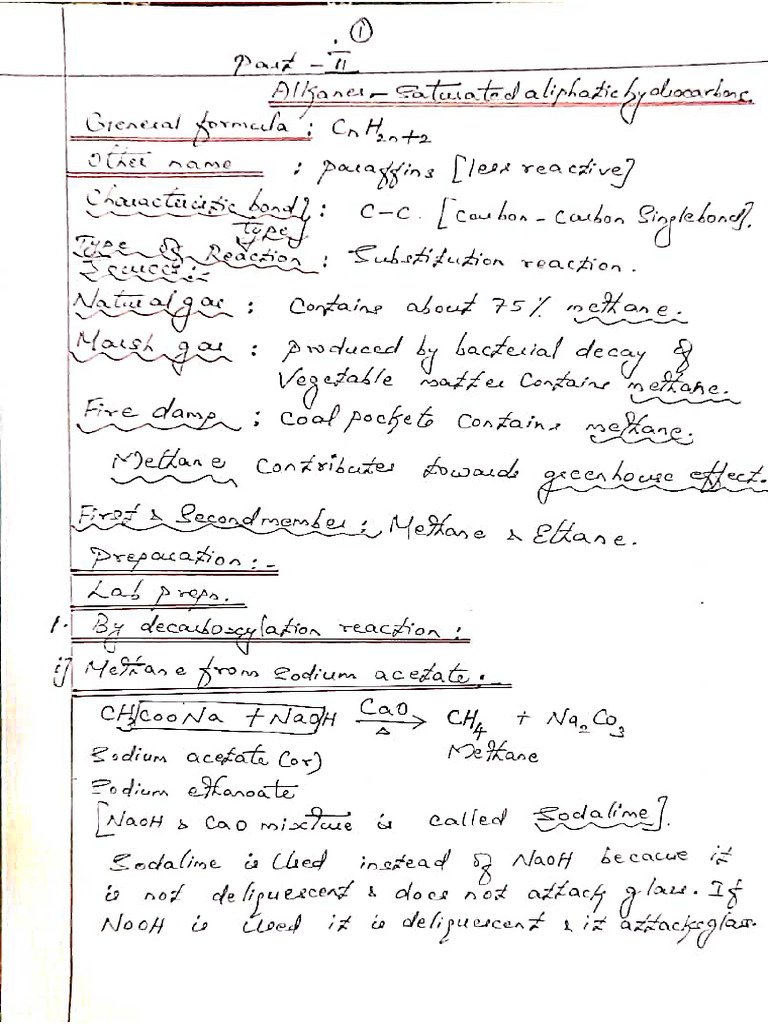 ①
Part - II
Alkanes - Saturated aliphatic hydrocarbons.
General formula : CnH2n+2
Other name : paraffins [less reactive]
Characteristic bond] : C-C. [Carbon - Carbon Singlebond].
type]
Type of Reaction : Substitution reaction.
Sources:-
Natural gas : Contains about 75% methane.
Marsh gas : produced by bacterial decay of
Vegetable matter contains methane.
Fire damp : coal pockets contains methane.
Methane contributes towards greenhouse effect.
First & Second member : Methane & Ethane.
Preparation:-
Lab prepn.
1. By decarboxylation reaction :
i] Methane from Sodium acetate :-
CH3COONa + NaOH CaO → Δ CH4 + Na2CO3
Sodium acetate (or) Methane
Sodium ethanoate
[NaOH & CaO mixture is called Sodalime].
Sodalime is Used instead of NaOH because it
is not deliquescent & does not attack glass. If
NaOH is Used it is deliquescent & it attacks glass.